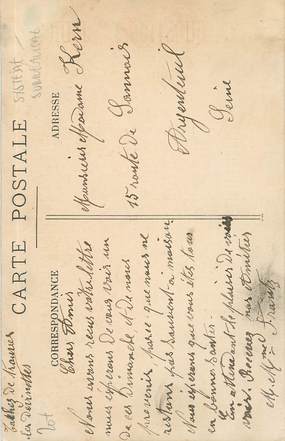 CARTE POSTALE
CORRESPONDANCE
Chers Amis
Nous avons reçu votre lettre
nous espérons de vous voir un
de ces Dimanche et de nous
prevenir parce que nous ne
restons pas souvent à maison
Nous espérons que vous êtes tous
en bonne santé.
En attendant le plaisir de vous
voir. Recevez nos amitiés
M. et Mme Frantz
ADRESSE
Monsieur et Madame Kern
15 route de Sannois
Argenteuil
Seine